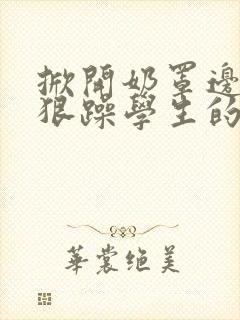 掀開奶罩邊
狠躁學生的
華裳绝美